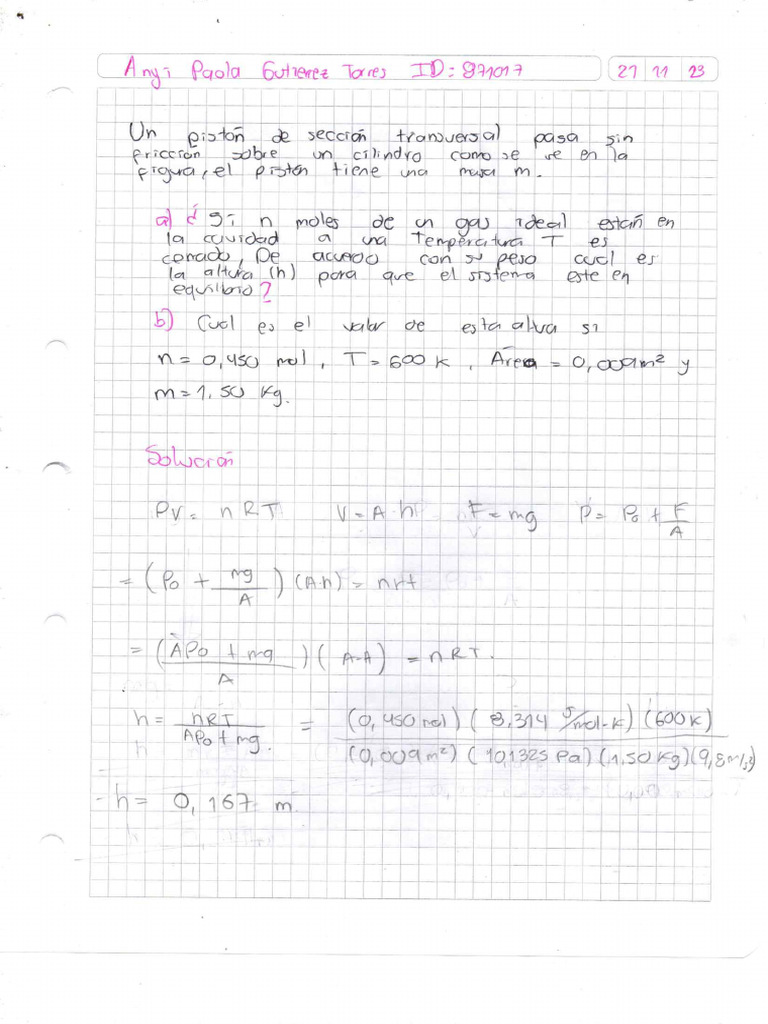 Anyi Paola Gutierrez Torres ID: 871017 21 11 23
Un pistón de sección transversal pasa sin
fricción sobre un cilindro como se ve en la
figura, el pistón tiene una masa m.
a) ¿ Si n moles de un gas ideal están en
la cavidad a una Temperatura T es
De acuerdo con su peso cual es
la altura (h) para que el sistema este en
equilibrio?
b) Cual es el valor de esta altura si
n = 0,450 mol, T = 600 k, Área = 0,009m² y
m = 1,50 Kg.
Solución
PV = nRT V = A·h F = mg P = Po + F/A
= (Po + mg/A) (A·h) = nrt
= (APo + mg/A) (A-A) = nRT.
h = nRT/APo + mg. = (0,450 mol) (8,314 J/mol-K) (600K)/(0,009m²) (101325 Pa) (1.50 Kg) (9,8 m/s²)
- h = 0,167 m